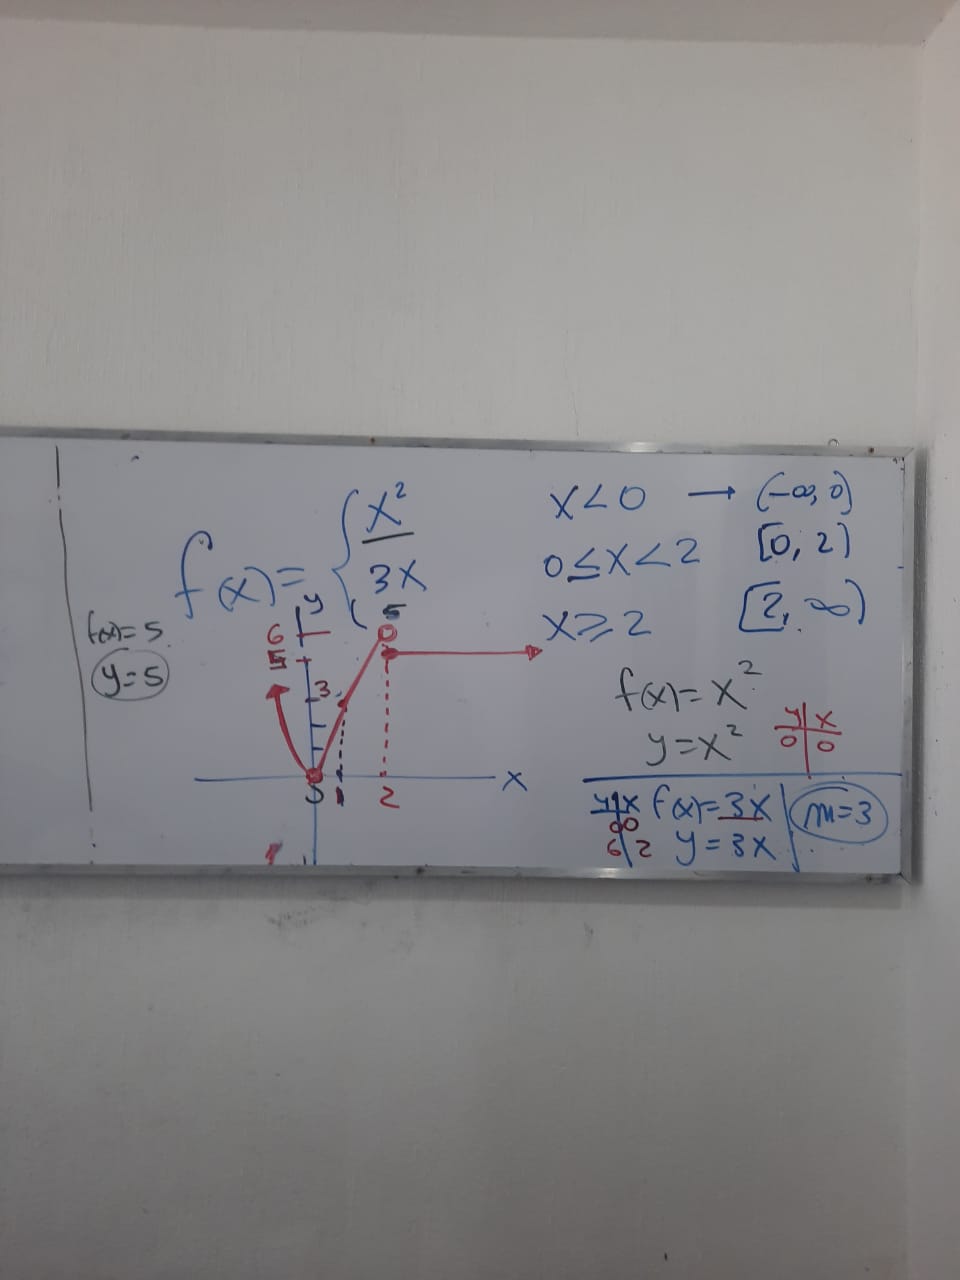 f(x) = { x² x<0 → (-∞, 0)
3x 0≤x<2 [0, 2)
5 x≥2 [2, ∞)
f(x)=5
y=5
y
6
5
3
1
2
x
f(x)=x²
y=x²
y x
0 0
y x
0 0
6 2
f(x)=3x
y=3x
m=3